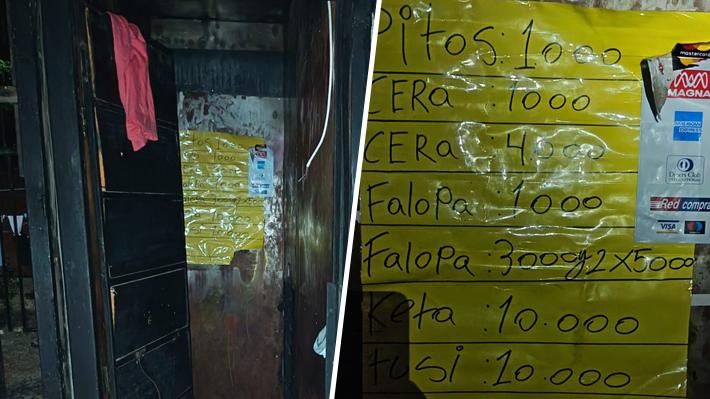 Pitos: 1000
CERa : 1000
CERa : 4.000
Falopa : 1000
Falopa : 3000y2x5000
Keta : 10.000
tusi : 10.000
mastercard
MAGNA
AMERICAN EXPRESS
Diners Club
INTERNATIONAL
Red compra
VISA